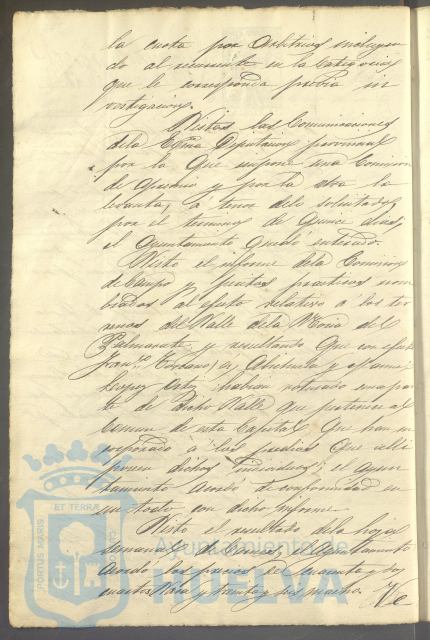 la cuota por Arbitrios incluyen
do al recurrente en la categoria
que le corresponda previa in
vestigacion.
Vistas las Comunicaciones
dela Exma Diputacion provincial
por la que impone una Comision
de apremio y por la otra la
levanta, á tenor delo solicitado,
por el termino de quince dias;
el Ayuntamiento quedó enterado.
Visto el informe dela Comision
de Campo y peritos practicos nom
brados al efecto relativo á los ter
renos del Valle dela Noria del
Palmarete y resultando que con efecto
Franco. y
Lopez han roturado una par
te de dicho Valle que pertenece al
comun de esta Capital que han in
corporado á los predios que alli
poseen dichos individuos; el ayun
tamiento acordó de conformidad en
un todo con dicho informe.
Visto el resultado dela hoja
semanal de el Ayuntamiento
acordó los precios de cuarenta y dos
cuartos Vaca y treinta y seis macho. Ve
PORTUS MARIS ET TERRAE
Ayuntamiento de
HUELVA